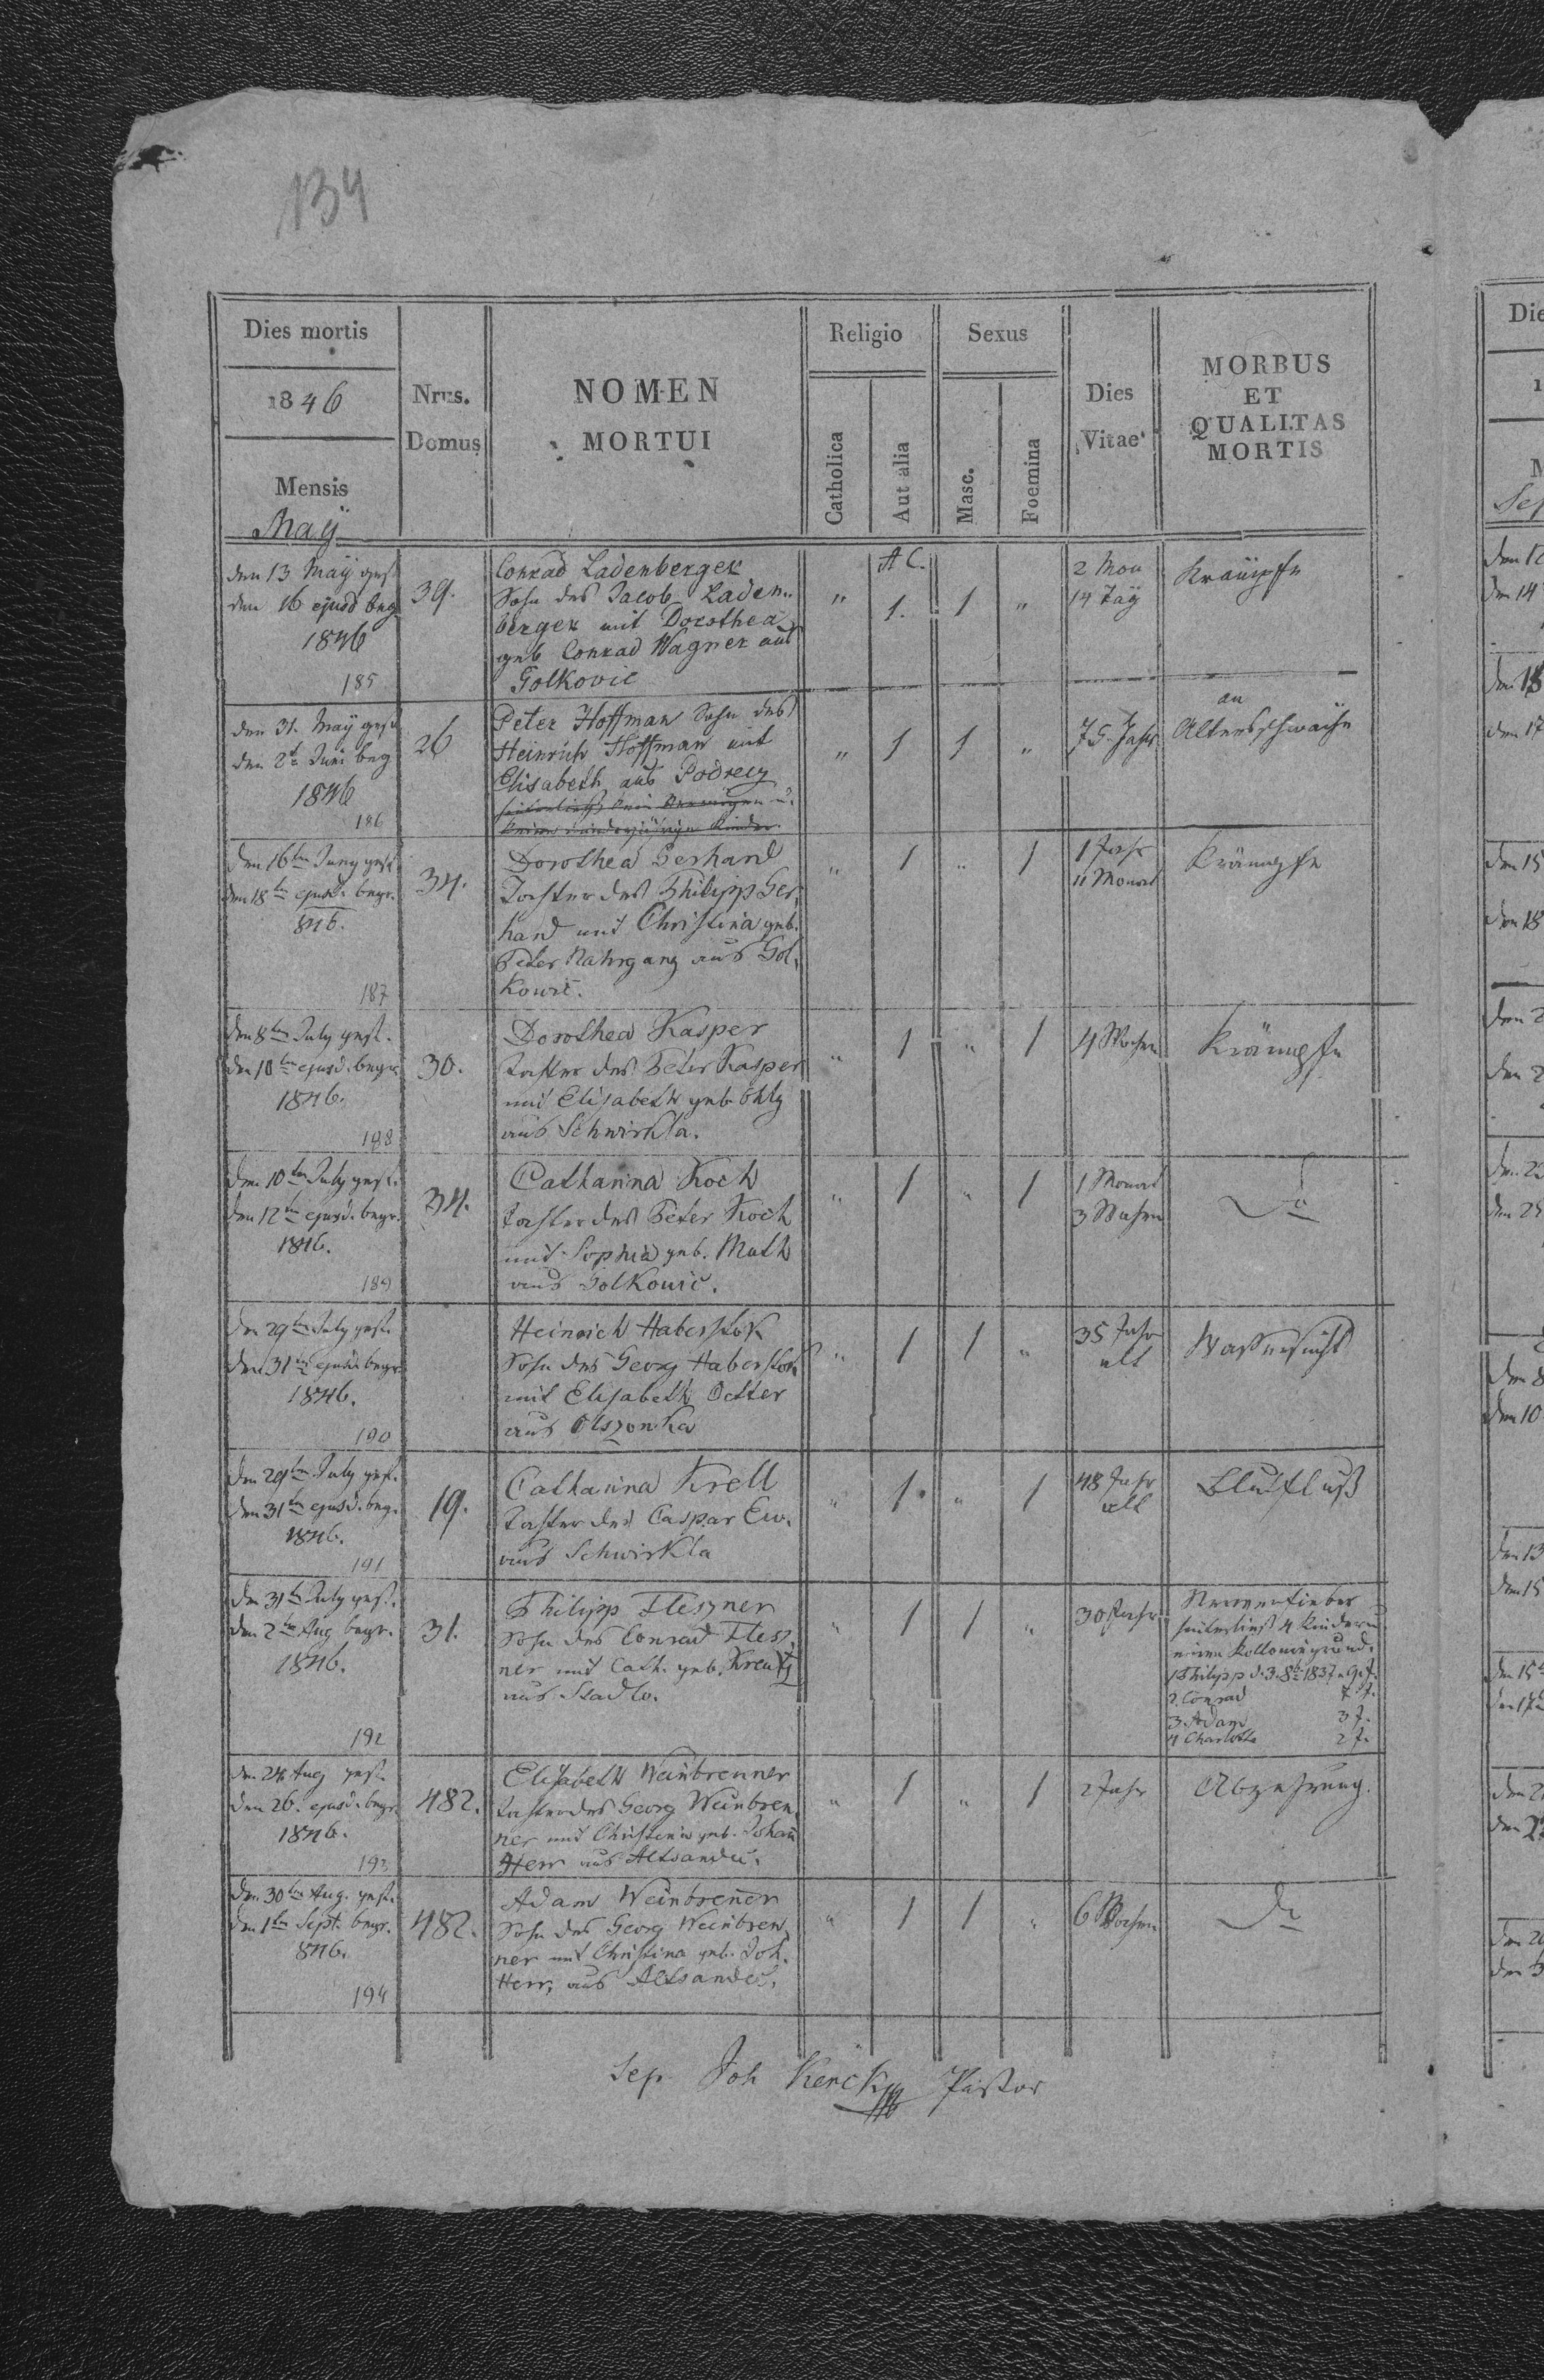 134
Dies mortis
1846
Mensis
Maÿ
Nrus.
Domus
NOMEN
MORTUI
Religio
Catholica
Aut alia
Sexus
Masc.
Foemina
Dies
Vitae
MORBUS
ET
QUALITAS
MORTIS
den 13 Maÿ gest
den 16 ejusd beg
1846
185
39.
Conrad Ladenberger
Sohn des Jacob Laden„
berger mit Dorothea
geb Conrad Wagner aus
Golkovic
"
A C.
1.
1
"
2 Mon
14 Tag
Krämpfe
den 31. Maÿ gest
den 2t Juni beg
1846
186
26
Peter Hoffman Sohn des
Heinrich Hoffman mit
Elisabeth aus Podrecz
hinterließ kein Vermögen u.
keine minderjährige Kinder.
"
1
1
"
75. Jahr
an
Altersschwäche
den 16ten Juny gest.
den 18ten ejusd. begr.
846.
187
34.
Dorothea Gerhard
Tochter des Philipp Ger,
hard mit Christina geb.
Peter Nahrgang aus Gol,
kowic.
"
1
"
1
1 Jahr
11 Monat
Krämpfe
den 8ten July gest.
den 10ten ejusd. begr.
1846.
188
30.
Dorothea Kasper
Tochter des Peter Kasper
mit Elisabeth geb. Ohly
aus Schwirkla.
"
1
"
1
4 Wochen
Krämpfe
den 10ten July gest.
den 12ten ejusd. begr.
1846.
189
34.
Catharina Koch
Tochter des Peter Koch
mit Sophia geb. Muth
aus Golkowic.
"
1
"
1
1 Monat
3 Wochen
do
den 29ten July gest.
den 31ten ejusd. begr.
1846.
190
Heinrich Haberstok
Sohn des Georg Haberstok
mit Elisabeth Oetter
aus Olszonka
"
1
1
"
35 Jahr
alt
Wassersucht
den 29ten July gest.
den 31ten ejusd. beg.
1846.
191
19.
Catharina Krell
Tochter des Caspar Ew.
aus Schwirkla
"
1.
"
1
48 Jahr
alt
Blutfluß
den 31ten July gest.
den 2ten Aug begr.
1846.
192
31.
Philipp Fleszner
Sohn des Conrad Flesz,
ner mit Cath. geb. Kreutz
aus Stadlo.
"
1
1
"
30 Jahr
Nervenfieber
hinterließ 4 Kinder u.
einen Kolloniegrund.
1 Philipp d. 3. 8br 1837 9 J.
2. Conrad 7 J.
3. Adam 3 J.
4 Charlotte 2 J.
den 24 Aug gest.
den 26. ejusd. begr.
1846.
193
482.
Elisabeth Weinbrenner
Tochter des Georg Weinbren,
ner mit Christina geb. Johan
Herr aus Altsandec.
"
1
"
1
2 Jahr
Abzehrung.
den 30ten Aug. gest.
den 1ten Sept. begr.
846.
194
482.
Adam Weinbrener
Sohn des Georg Weinbren,
ner mit Christina geb. Joh.
Herr, aus Altsandec.
"
1
1
"
6 Wochen
do
Sep. Joh Kerck Pastor